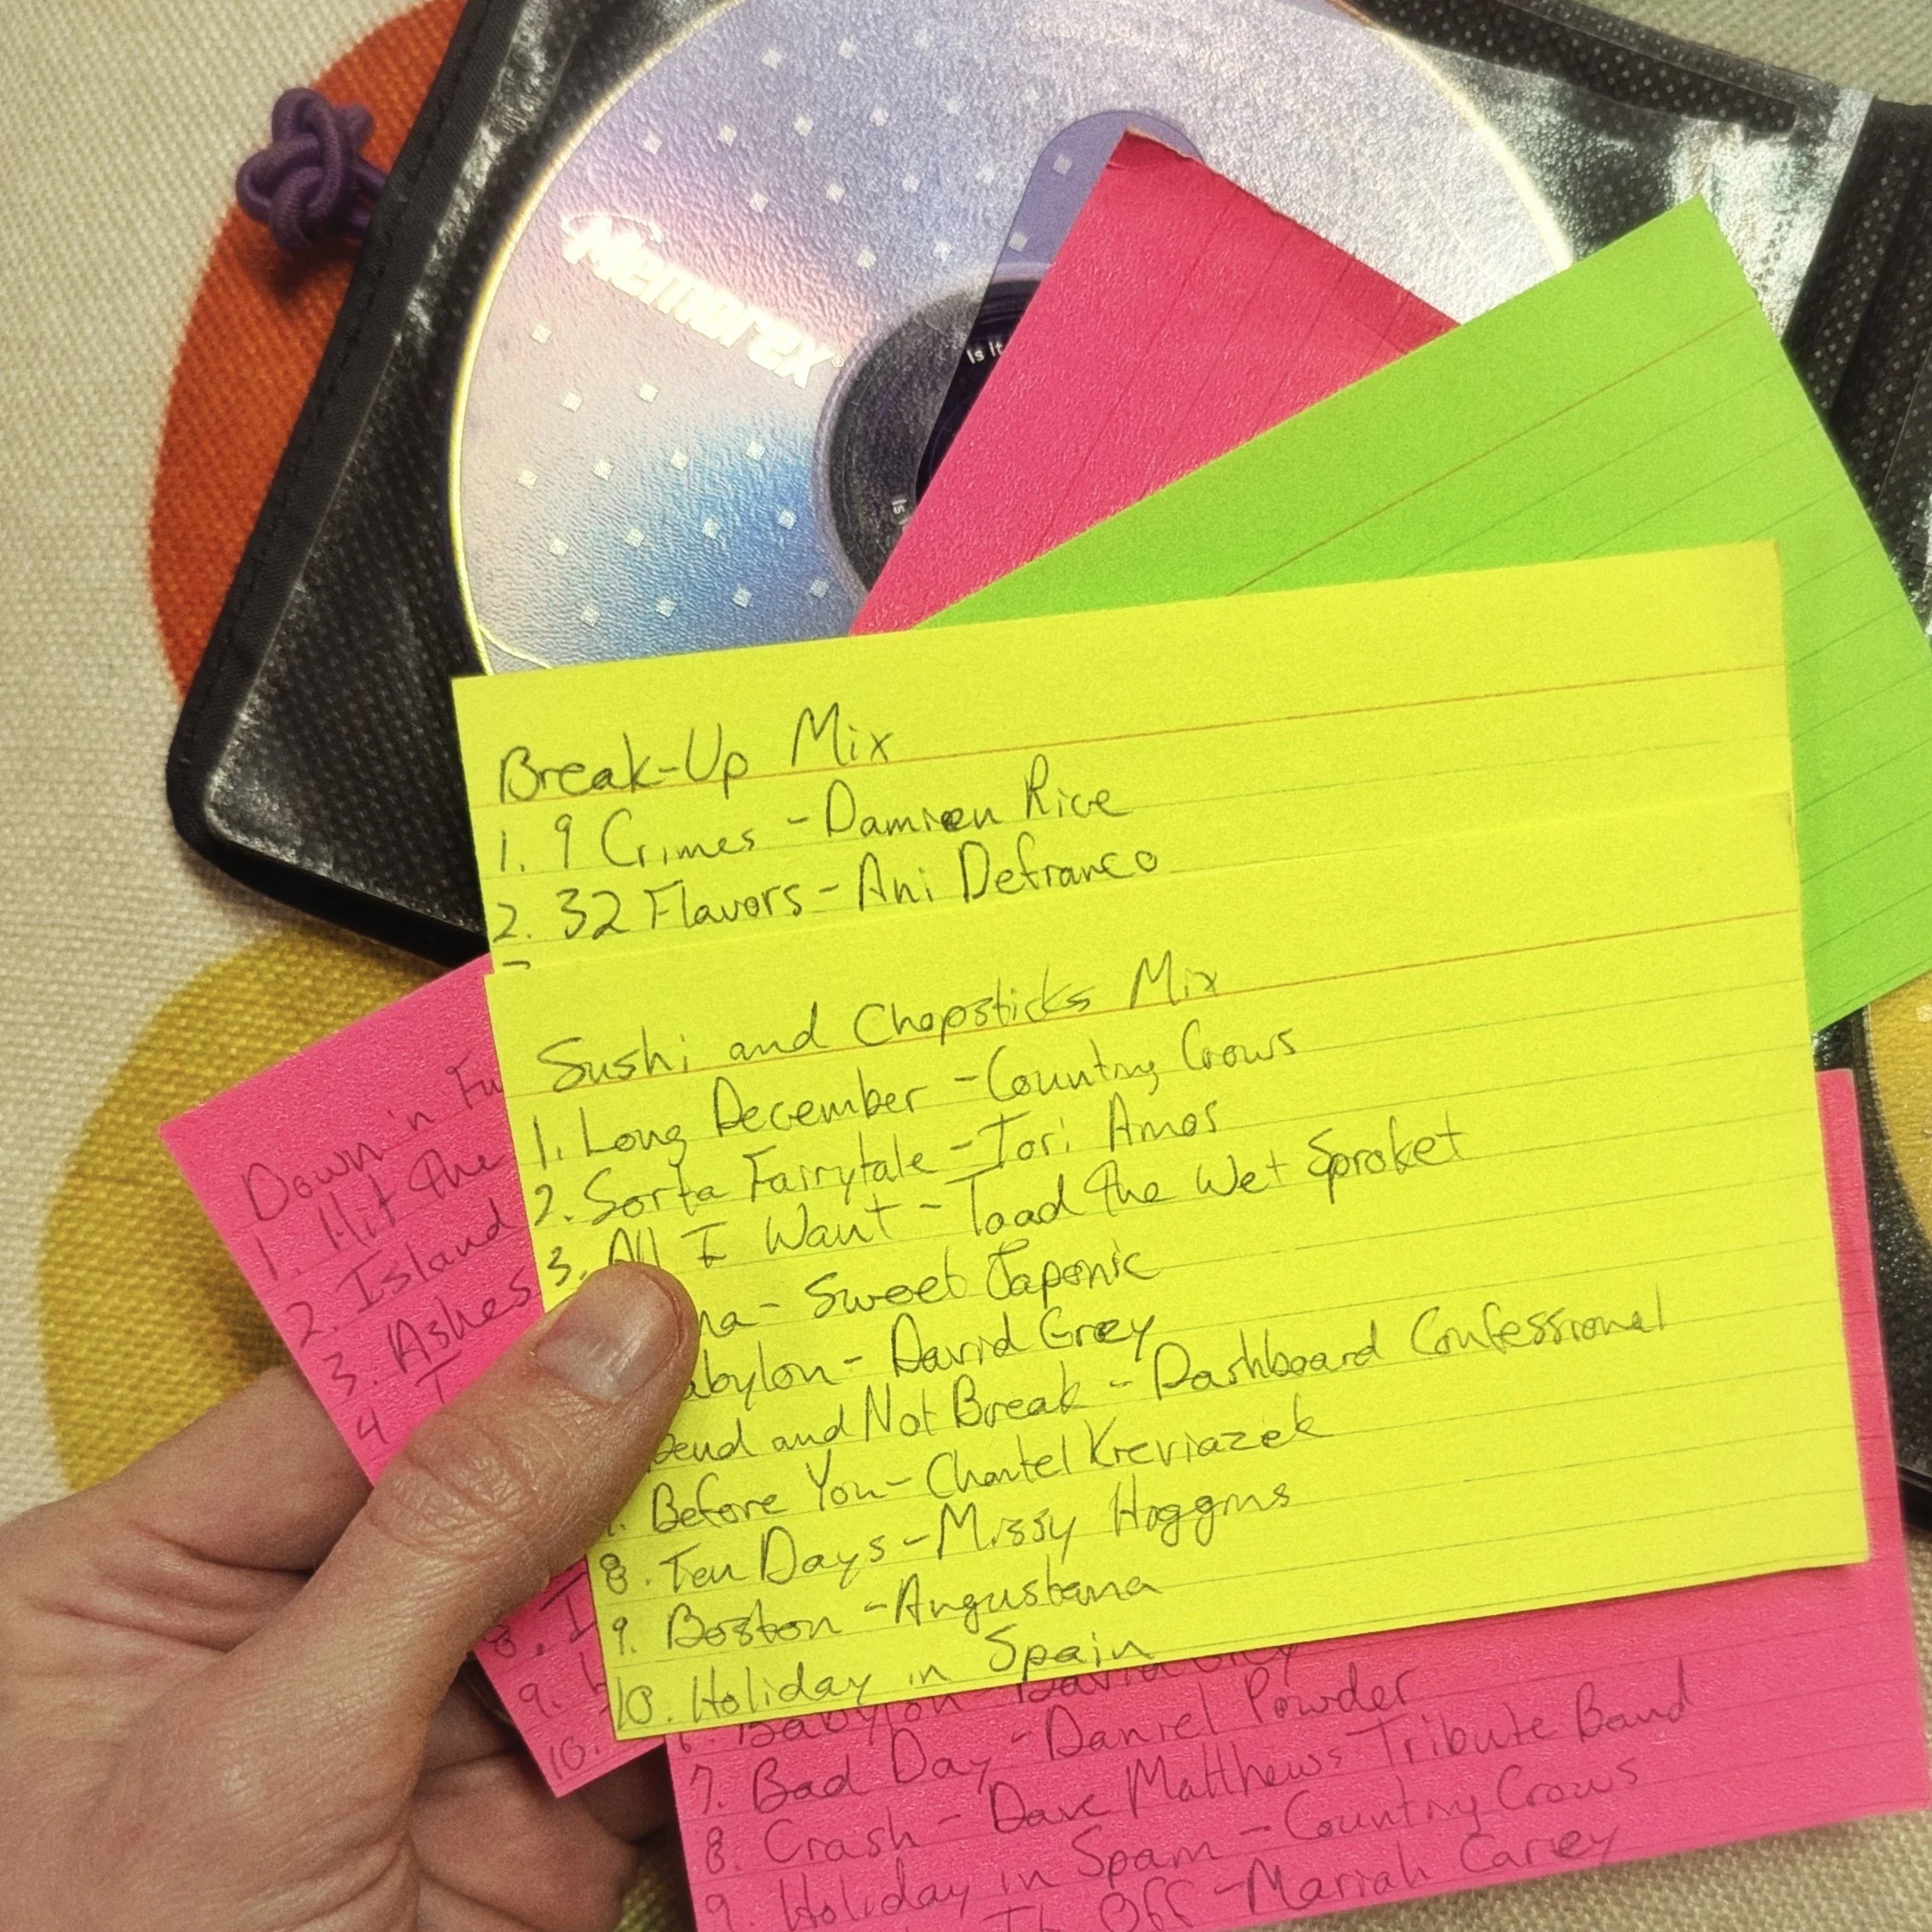 Memorex
Is it
Is
Break-Up Mix
1. 9 Crimes - Damien Rice
2. 32 Flavors - Ani Defranco
Sushi and Chopsticks Mix
1. Long December - Countny Crows
2. Sorta Fairytale - Tori Amos
3. All I Want - Toad the Wet Sproket
na - Sweet Japonic
abylon - David Grey
Bend and Not Break - Dashboard Confessional
Before You - Chantel Kreviazek
8. Ten Days - Missy Higgins
9. Boston - Angustana
10. Holiday in Spain
Down 'n Fu
1. Hit the
2. Island
3. Ashes
4 I
8. I
9.
10.
6. Babylon - David Grey
7. Bad Day - Daniel Powder
8. Crash - Dave Matthews Tribute Band
9. Holiday in Spain - Countny Crows
It Off - Mariah Carey